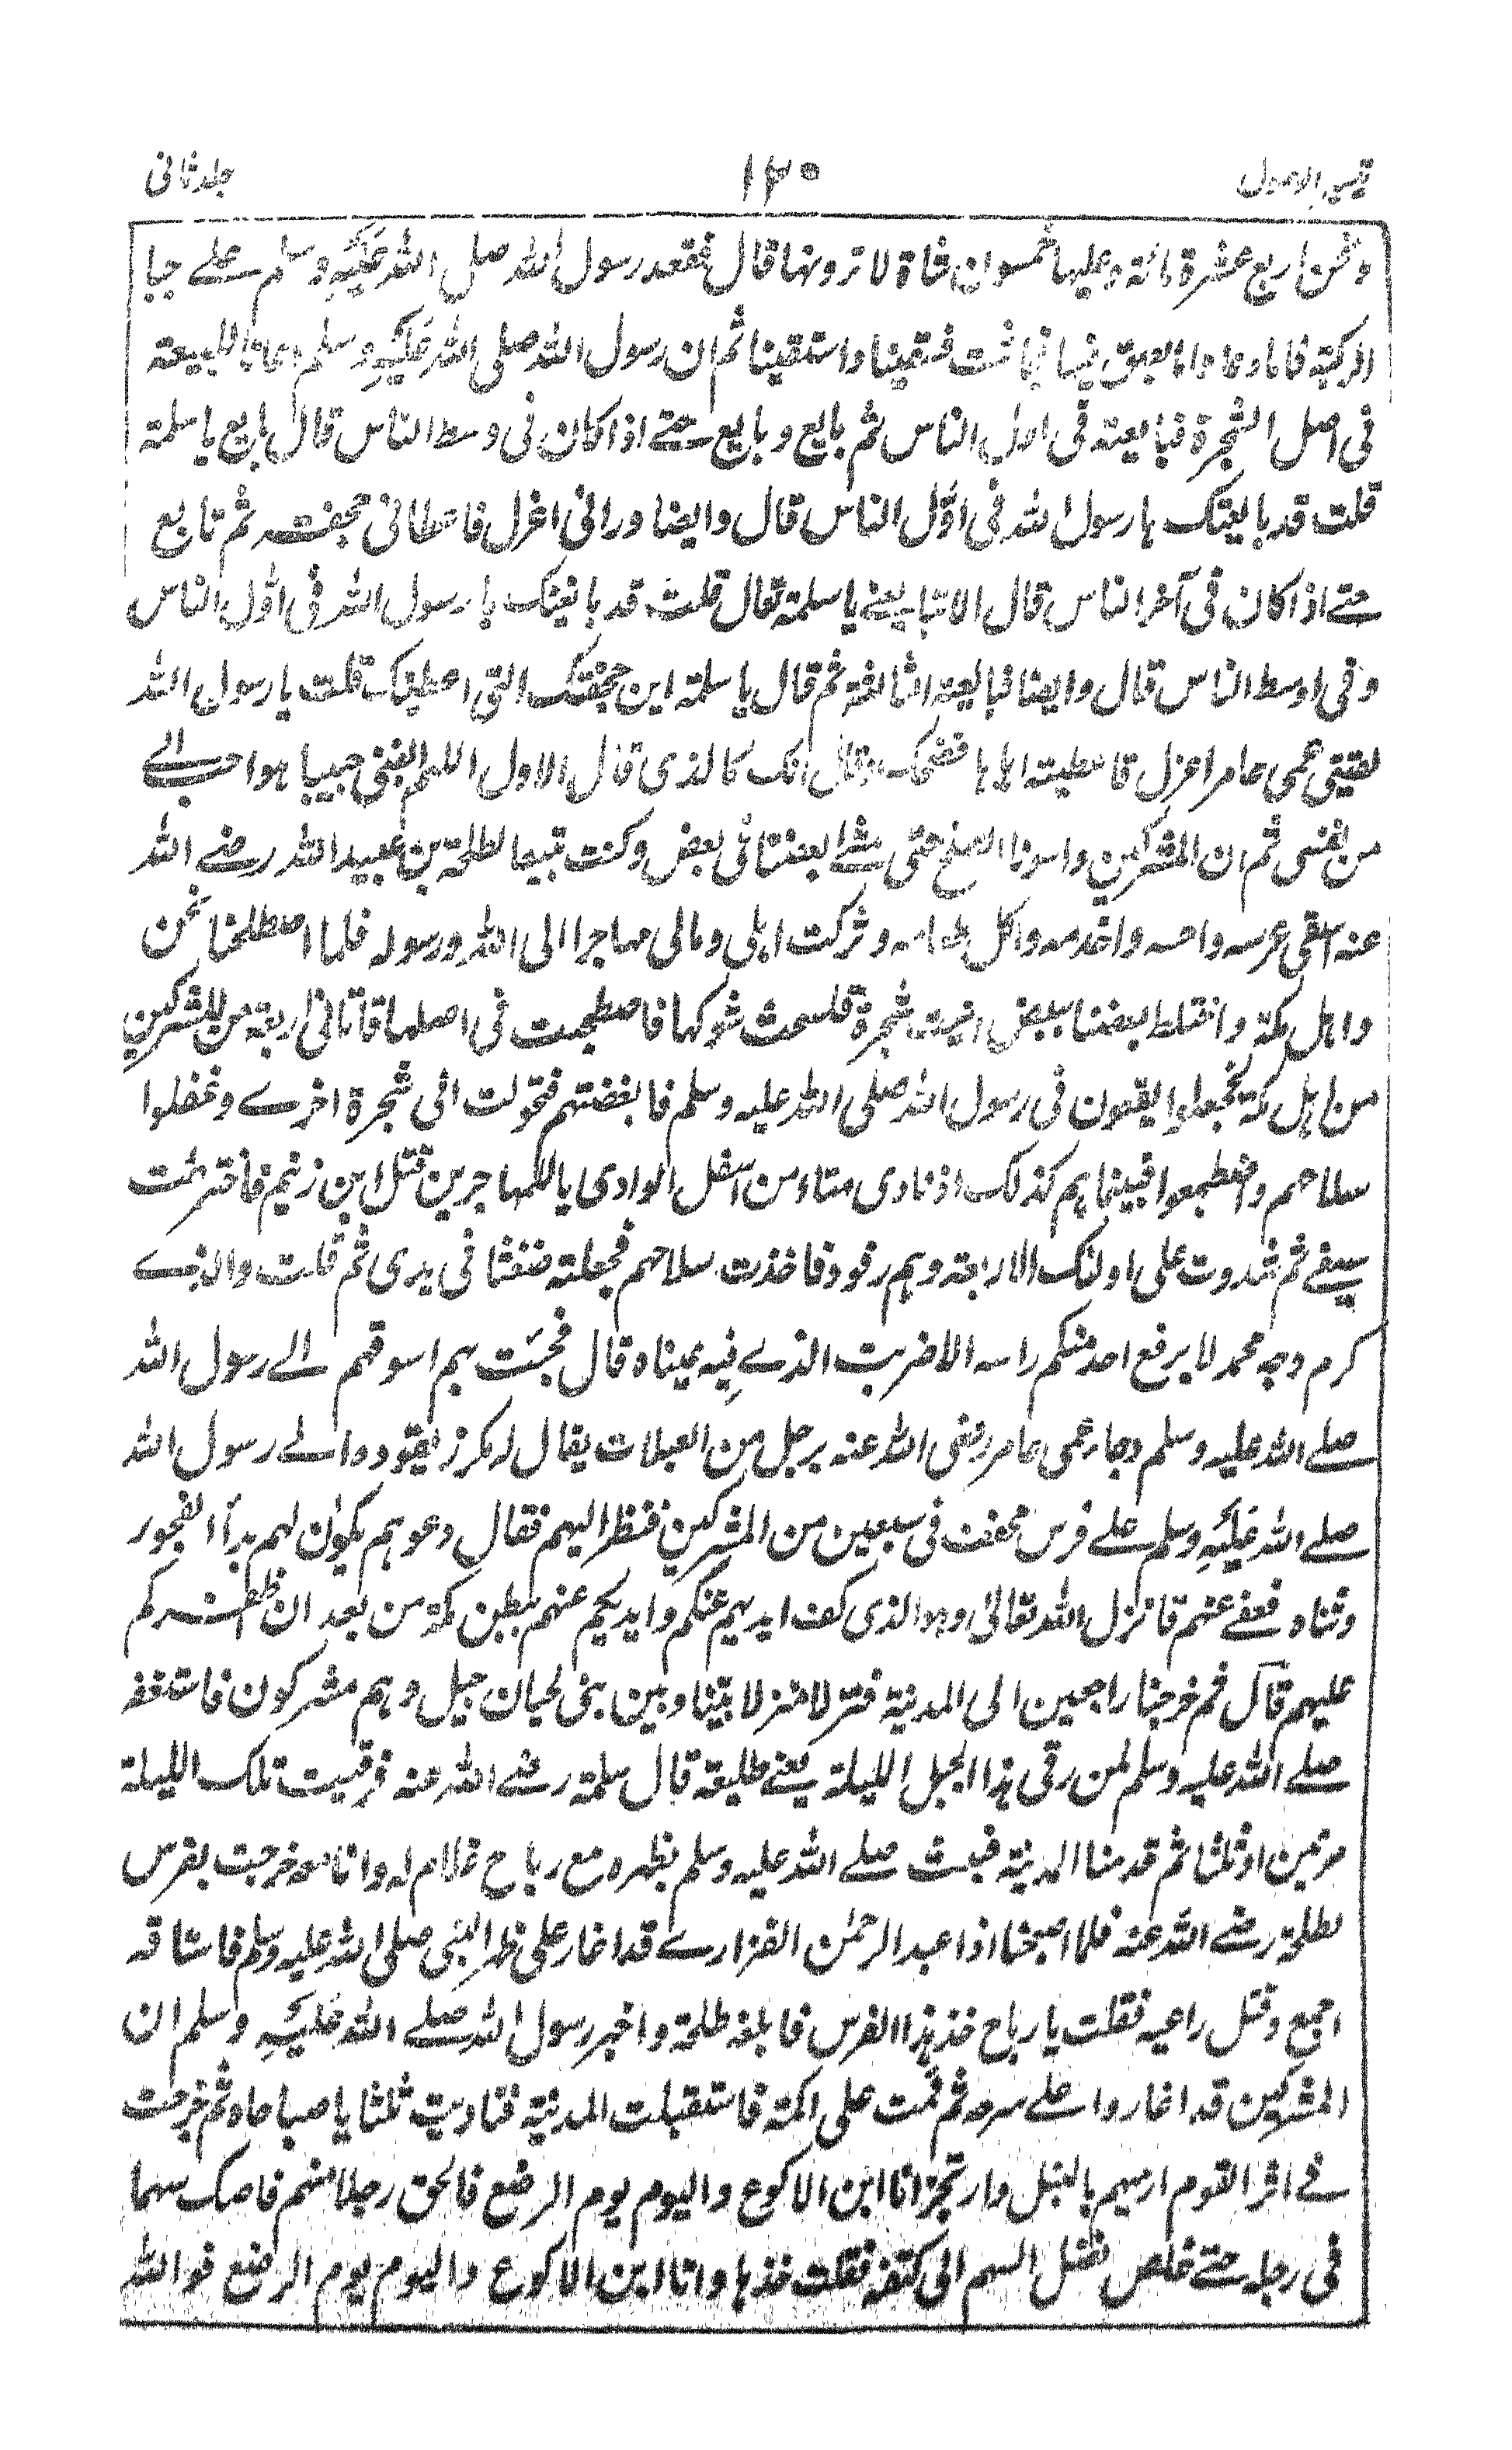 تيسير الاصول ١٢٠ جلد ثانى
ونحن اربع عشرة مائة وعليها خمسون شاة لا ترويها قال فقعد رسول الله صلى الله عليه وسلم على جبا
الركية فاما دعا واما بصق فيها فجاشت فسقينا واستقينا ثم ان رسول الله صلى الله عليه وسلم دعانا للبيعة
فى اصل الشجرة فبايعته فى اول الناس ثم بايع وبايع حتى اذا كان فى وسط الناس قال بايع يا سلمة
قلت قد بايعتك يا رسول الله فى اوّل الناس قال وايضا ورانى اعزل فاعطانى حجفة ثم تابع
حتى اذا كان فى آخر الناس قال الا تبايعنى يا سلمة قال قلت قد بايعتك يا رسول الله فى اوّل الناس
وفى اوسط الناس قال وايضا فبايعته الثالثة ثم قال يا سلمة اين حجفتك التى اعطيتك قلت يا رسول الله
لقينى عمى عامر اعزل فاعطيته اياها فضحك وقال انك كالذى قال الاول اللهم ابغنى حبيبا هو احب الى
من نفسى ثم ان المشركين واسونا الصلح حتى مشى بعضنا فى بعض وكنت تبيعا لطلحة بن عبيد الله رضى الله
عنه اسقى فرسه واحسه واخدمه واكل طعامه وتركت اهلى ومالى مهاجرا الى الله ورسوله فلما اصطلحنا نحن
واهل مكة واختلط بعضنا ببعض اتيت شجرة فكسحت شوكها فاضطجعت فى اصلها فاتانى اربعة من المشركين
من اهل مكة فجعلوا يقعون فى رسول الله صلى الله عليه وسلم فابغضتهم فتحولت الى شجرة اخرى وعلقوا
سلاحهم واضطجعوا فبينما هم كذلك اذ نادى مناد من اسفل الوادى يا للمهاجرين قتل ابن زنيم فاخترطت
سيفى ثم شدوت على اولئك الاربعة وهم رقود فاخذت سلاحهم فجعلته ضغثا فى يدى ثم قلت والذى
كرم وجه محمد لا يرفع احد منكم راسه الا ضربت الذى فيه عيناه قال فجئت بهم اسوقهم الى رسول الله
صلى الله عليه وسلم وجاء عمى عامر رضى الله عنه برجل من العبلات يقال له مكرز يقوده الى رسول الله
صلى الله عليه وسلم على فرس مجفف فى سبعين من المشركين فنظر اليهم فقال دعوهم يكون لهم بدأ الفجور
وثناه فعفى عنهم فانزل الله تعالى وهو الذى كف ايديهم عنكم وايديكم عنهم ببطن مكة من بعد ان ظفركم
عليهم قال ثم خرجنا راجعين الى المدينة فنزلنا منزلا بيننا وبين بنى لحيان جبل وهم مشركون فاستغفر
صلى الله عليه وسلم لمن رقى هذا الجبل الليلة يعنى طليعة قال سلمة رضى الله عنه فرقيت تلك الليلة
مرتين او ثلثا ثم قدمنا المدينة فبعث صلى الله عليه وسلم بظهره مع رباح غلام له وانا معه خرجت بفرس
لطلحة رضى الله عنه فلما اصبحنا اذا عبد الرحمٰن الفزارى قد اغار على ظهر النبى صلى الله عليه وسلم فاستاقه
اجمع وقتل راعيه فقلت يا رباح خذ هذا الفرس فابلغه طلحة واخبر رسول الله صلى الله عليه وسلم ان
المشركين قد اغاروا على سرحه ثم قمت على اكمة فاستقبلت المدينة فناديت ثلثا يا صباحاه ثم خرجت
فى اثر القوم ارميهم بالنبل وارتجز انا ابن الاكوع واليوم يوم الرضع فالحق رجلا منهم فاصك سهما
فى رجله حتى خلص نصل السهم الى كتفه فقلت خذها وانا ابن الاكوع واليوم يوم الرضع فوالله